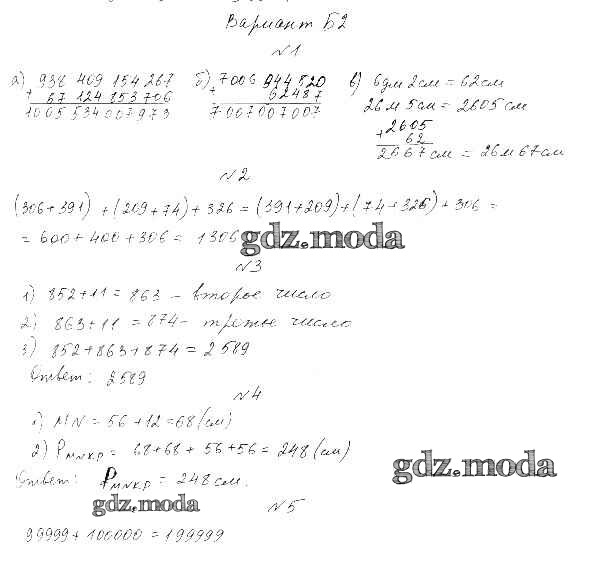 Вариант Б2
№1
а) 938 409 154 267
+ 67 124 853 706
1005 534 007 973
б) 7006 944 520
+ 62487
7 007 007 007
в) 6дм 2см = 62см
26м 5см = 2605 см
+ 2605
62
2667 см = 26м 67см
№2
(306+391) + (209+74) + 326 = (391+209)+(74+326)+306 =
= 600+400+306 = 1306
gdz.moda
№3
1) 852+11 = 863 - второе число
2) 863+11 = 874 - третье число
3) 852+863+874 = 2589
Ответ: 2589
№4
1) MN = 56+12=68(см)
2) P MNKP = 68+68+56+56 = 248(см)
gdz.moda
Ответ: P MNKP = 248см.
gdz.moda
№5
99999+100000 = 199999